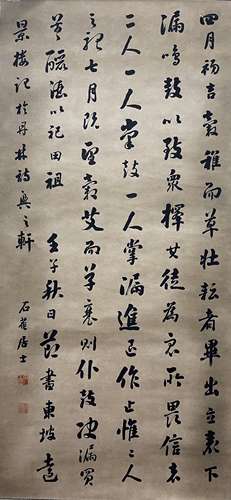 四月初吉穀稚而草壯耘者畢出立表下
漏鳴鼓以致衆擇其徒為衆所畏信者
二人一人掌鼓一人掌漏進退作止惟二人
之聽七月既望穀艾而草衰則仆鼓決漏買
羊釃酒以祀田祖 壬子秋日節書東坡遠
景樓記於丹林詩興之軒
石居士